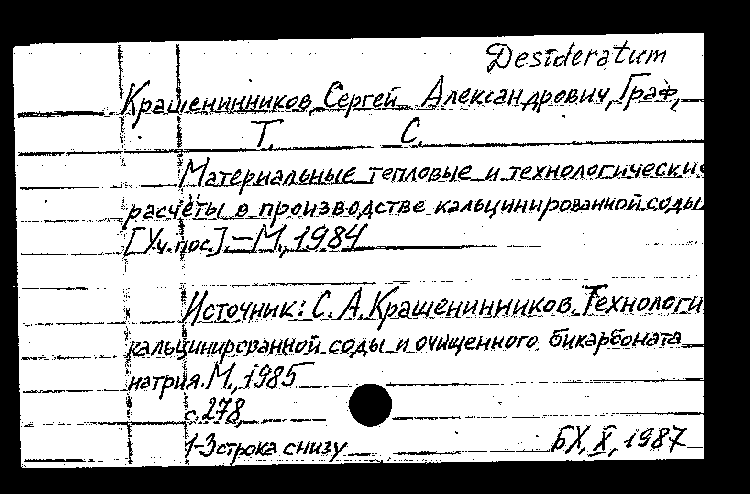 Desideratum
Крашенинников, Сергей Александрович, Граф,
Т. С.
Материальные тепловые и технологические
расчёты в производстве кальцинированной соды
[Уч. пос.] – М., 1984
Источник: С. А. Крашенинников. Технологи
кальцинированной соды и очищенного бикарбоната
натрия. М., 1985
с. 278,
1-3 строка снизу
БХ, X, 1987